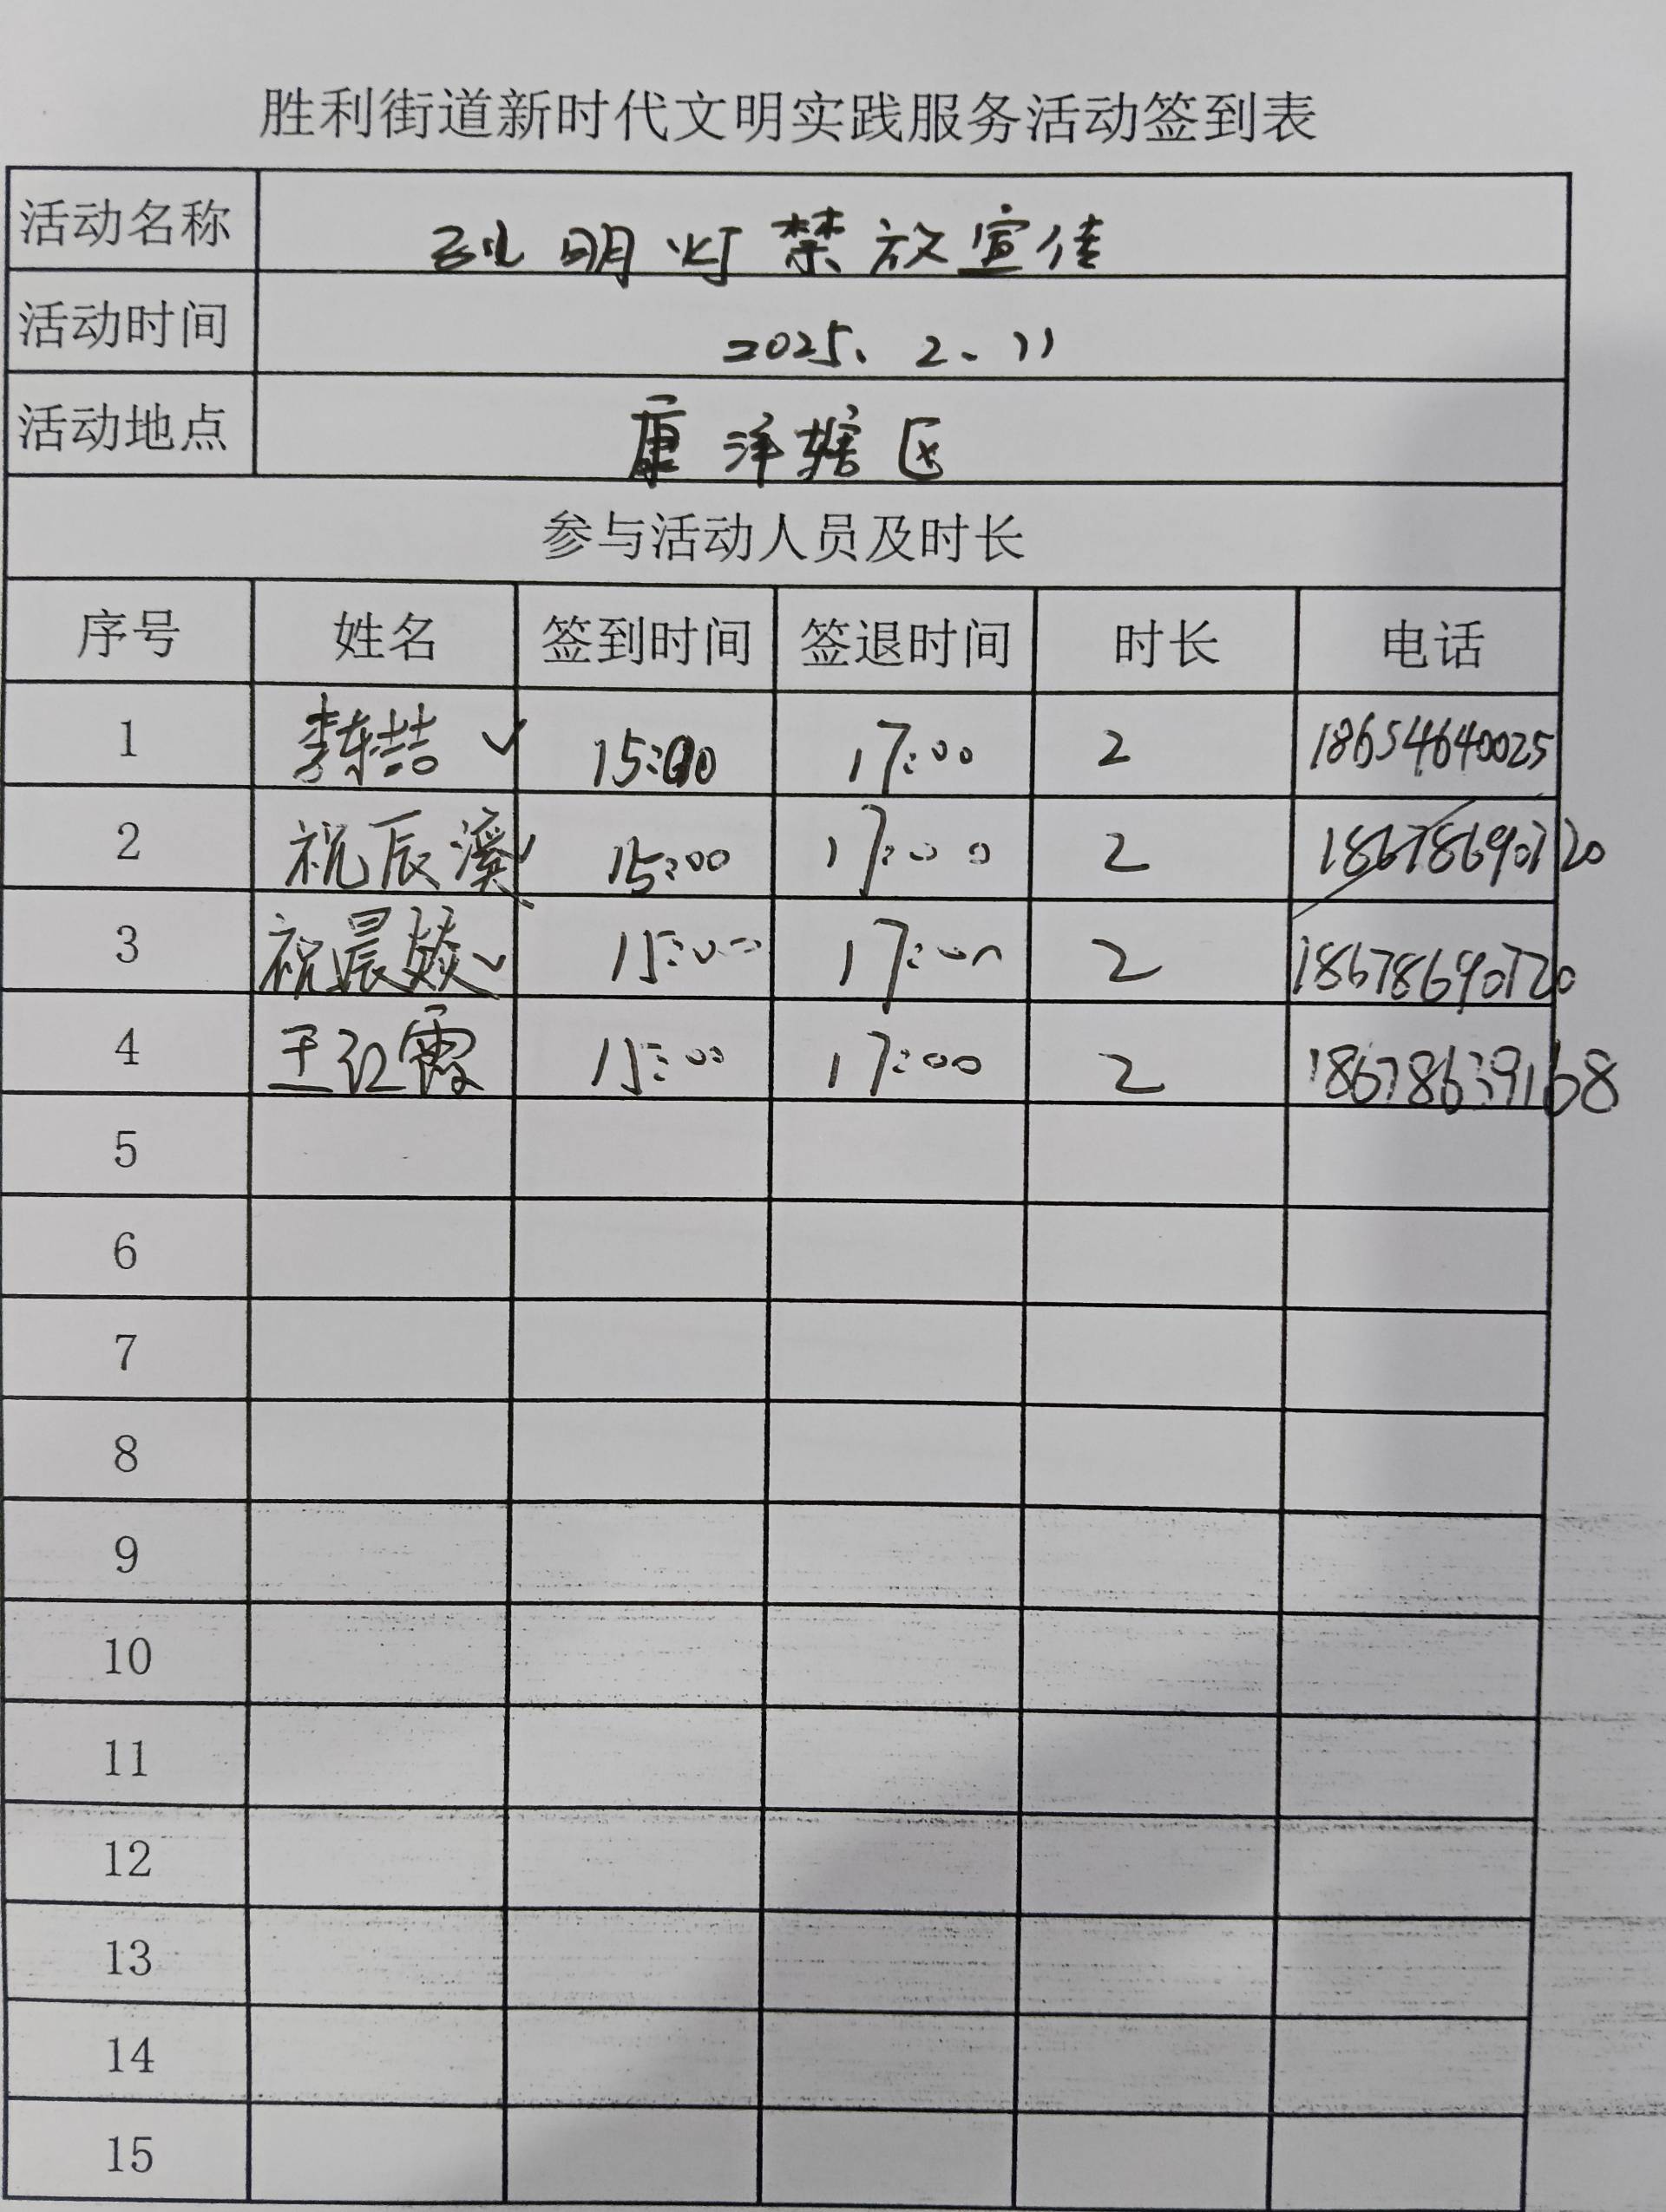 胜利街道新时代文明实践服务活动签到表
活动名称 孔明灯禁放宣传
活动时间 2025、2、11
活动地点 康洋辖区
参与活动人员及时长
序号 姓名 签到时间 签退时间 时长 电话
1 李东喆 ✓ 15:00 17:00 2 18654640025
2 祝辰溪 ✓ 15:00 17:00 2 18678690720
3 祝晨燚 ✓ 15:00 17:00 2 18678690720
4 王红霞 15:00 17:00 2 18678639168
5
6
7
8
9
10
11
12
13
14
15